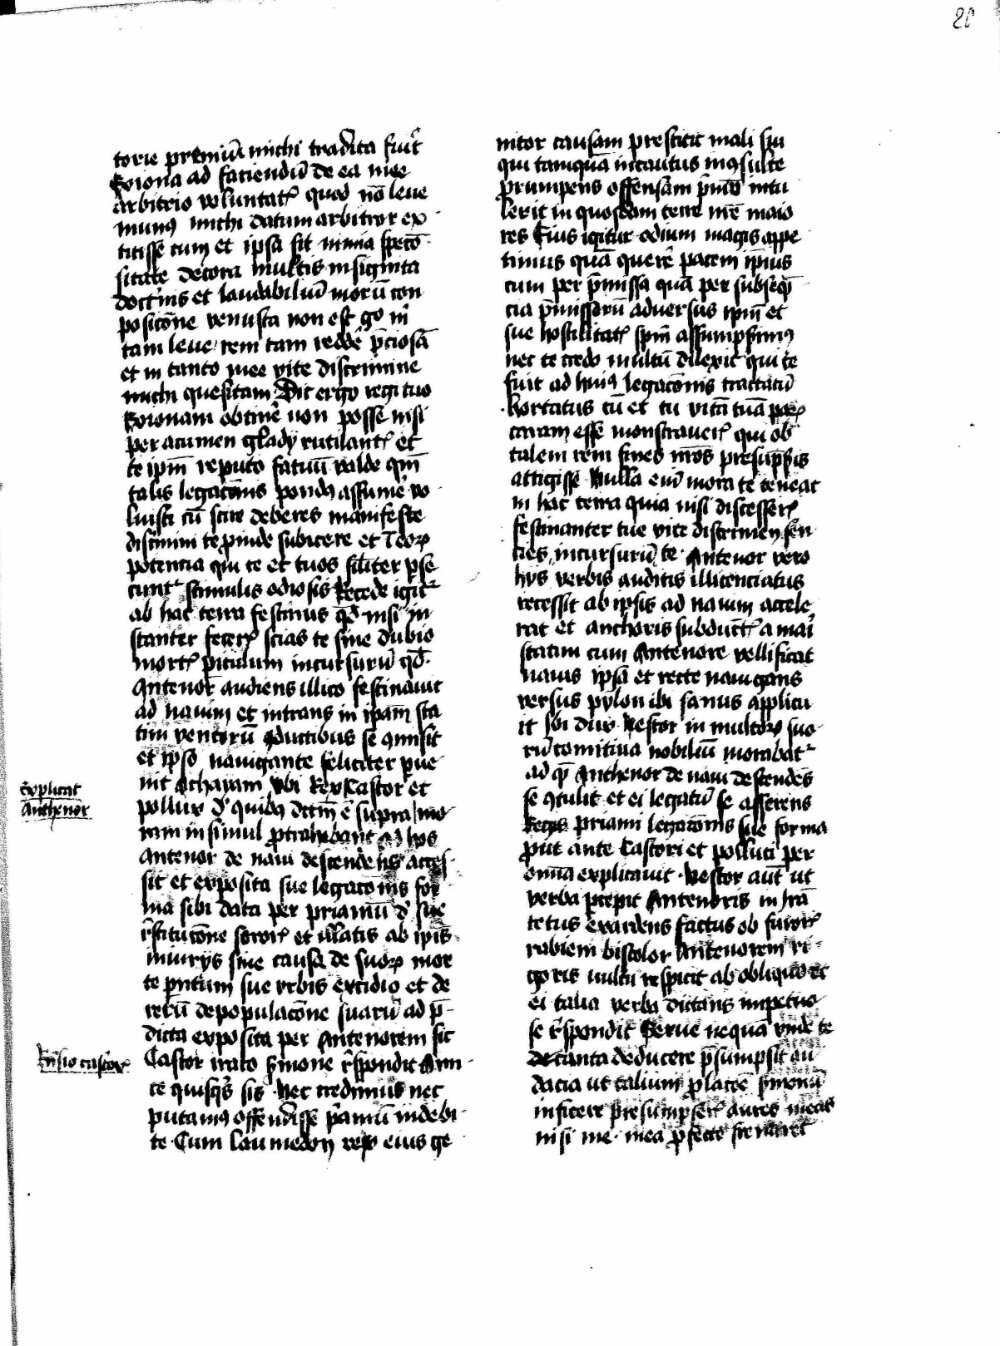 20
torie premiũ michi tradita fuit
Exiona ad faciendũ de ea mee
arbitrio voluntatꝭ quod nõ leve
munꝰ michi datum arbitror ex
titisse cum et ipsa sit nimia specio
sitate decora multis insignita
doctrinis et laudabiliũ morũ con
posicõne venusta non est gͦ m̃
tam leve rem tam reddẽ p̃ciosã
et in tanto mee vite discrimine
michi quesitam Dic ergo regi tuo
Exionam obtinẽ non posse nisi
per acumen glady rutilantꝭ et
te ipm̃ reputo fatuũ valde qm̃
talis legacõnis pondꝰ assumẽ vo
luisti cũ scire deberes manifeste
discrimini te ꝓinde subicere et eoꝝ
potencia qui te et tuos siliter ꝑse
cunt² stimulis odiosis Recede igit²
ab hac terra festinus qd̃ nisi in
stanter fecerꝭ scias te sine dubio
mortꝭ piculum incursurũ qd̃
Antenor audiens illico festinavit
ad navim et intrans in ipam̃ sta
tim ventorũ ductibus se ꝯmisit
et ip̃o navigante feliciter ꝑve
nit Achaiam vbi Rex Castor et
pollux d̃ quibꝰ dctm̃ ẽ supra mo
ram insimul ꝓtrahebant ad hos
Antenor de navi descendens acces
sit et exposita sue legacõnis for
ma sibi data per priamũ d̃ sue
r̃stitucõne sororꝭ et illatis ab ip̃is
iniurys sine causa de suoꝝ mor
te ꝑentum sue vrbis excidio et de
rerũ depopulacõne suarũ ad p̃
dicta exposita per Antenorem sic
Castor irato ẜmone r̃spondit Am
ce quisqͥs sis nec credimus nec
putamꝰ offendisse p̃amũ indebi
te Cum laumedon rex eius ge
Explicat
Anthenor
R̃nsio castorꝭ
nitor causam prestitit mali sui
qui tamquã incautus inꝯsulte
ꝓrumpens offensam p̃mo intu
lerit in quosdam terre nr̃e maio
res Eius igitur odium magis appe
timus quã querẽ pacem ip̃ius
cum per p̃missa quã per subseq̃
cia p̃missorũ adversus ipm̃ et
sue hostilitatꝭ spm̃ assumpsimꝰ
nec te credo multũ dilexit qui te
fuit ad huiꝰ legacõnis tractatũ
hortatus cũ et tu vitã tuã paꝝ
caram esse monstraverꝭ qui ob
talem rem fines nr̃os presũpsis
attigisse Nulla eni mora te teneat
in hac terra quia nisi discesserꝭ
festinanter tue vite discrimen sen
cies incursurũ te Antenor vero
hys verbis auditis illicenciatus
recessit ab ipsis ad navim accele
rat et anchoris subductꝭ a mari
statim cum Antenore vellificat
navis ipsã et recte navigans
versus pylon ibi sanus applicu
it vbi dux Nestor in multoꝝ suo
rũ comitiva nobiliũ morabat²
ad qẽ Anthenor de navi descendẽs
se ꝯtulit et ei legatũ se asserens
Regis priami legacõnis sue forma
ꝓut ante Castori et polluci per
omia explicavit Nestor aut̃ ut
verba p̃cepit Antenoris in irã
totus exardens factus ob furorꝭ
rabiem discolor Antenorem ri
goris vultu respicit ab obliquo et
ei talia verba dictans impetuo
se r̃spondit Serve nequã vnde te
tanta deducere p̃sumpsit au
dacia ut talium ꝓlacõe ẜmonũ
inficere presumpserꝭ aures meas
nisi me mea ꝓfecto frenaret